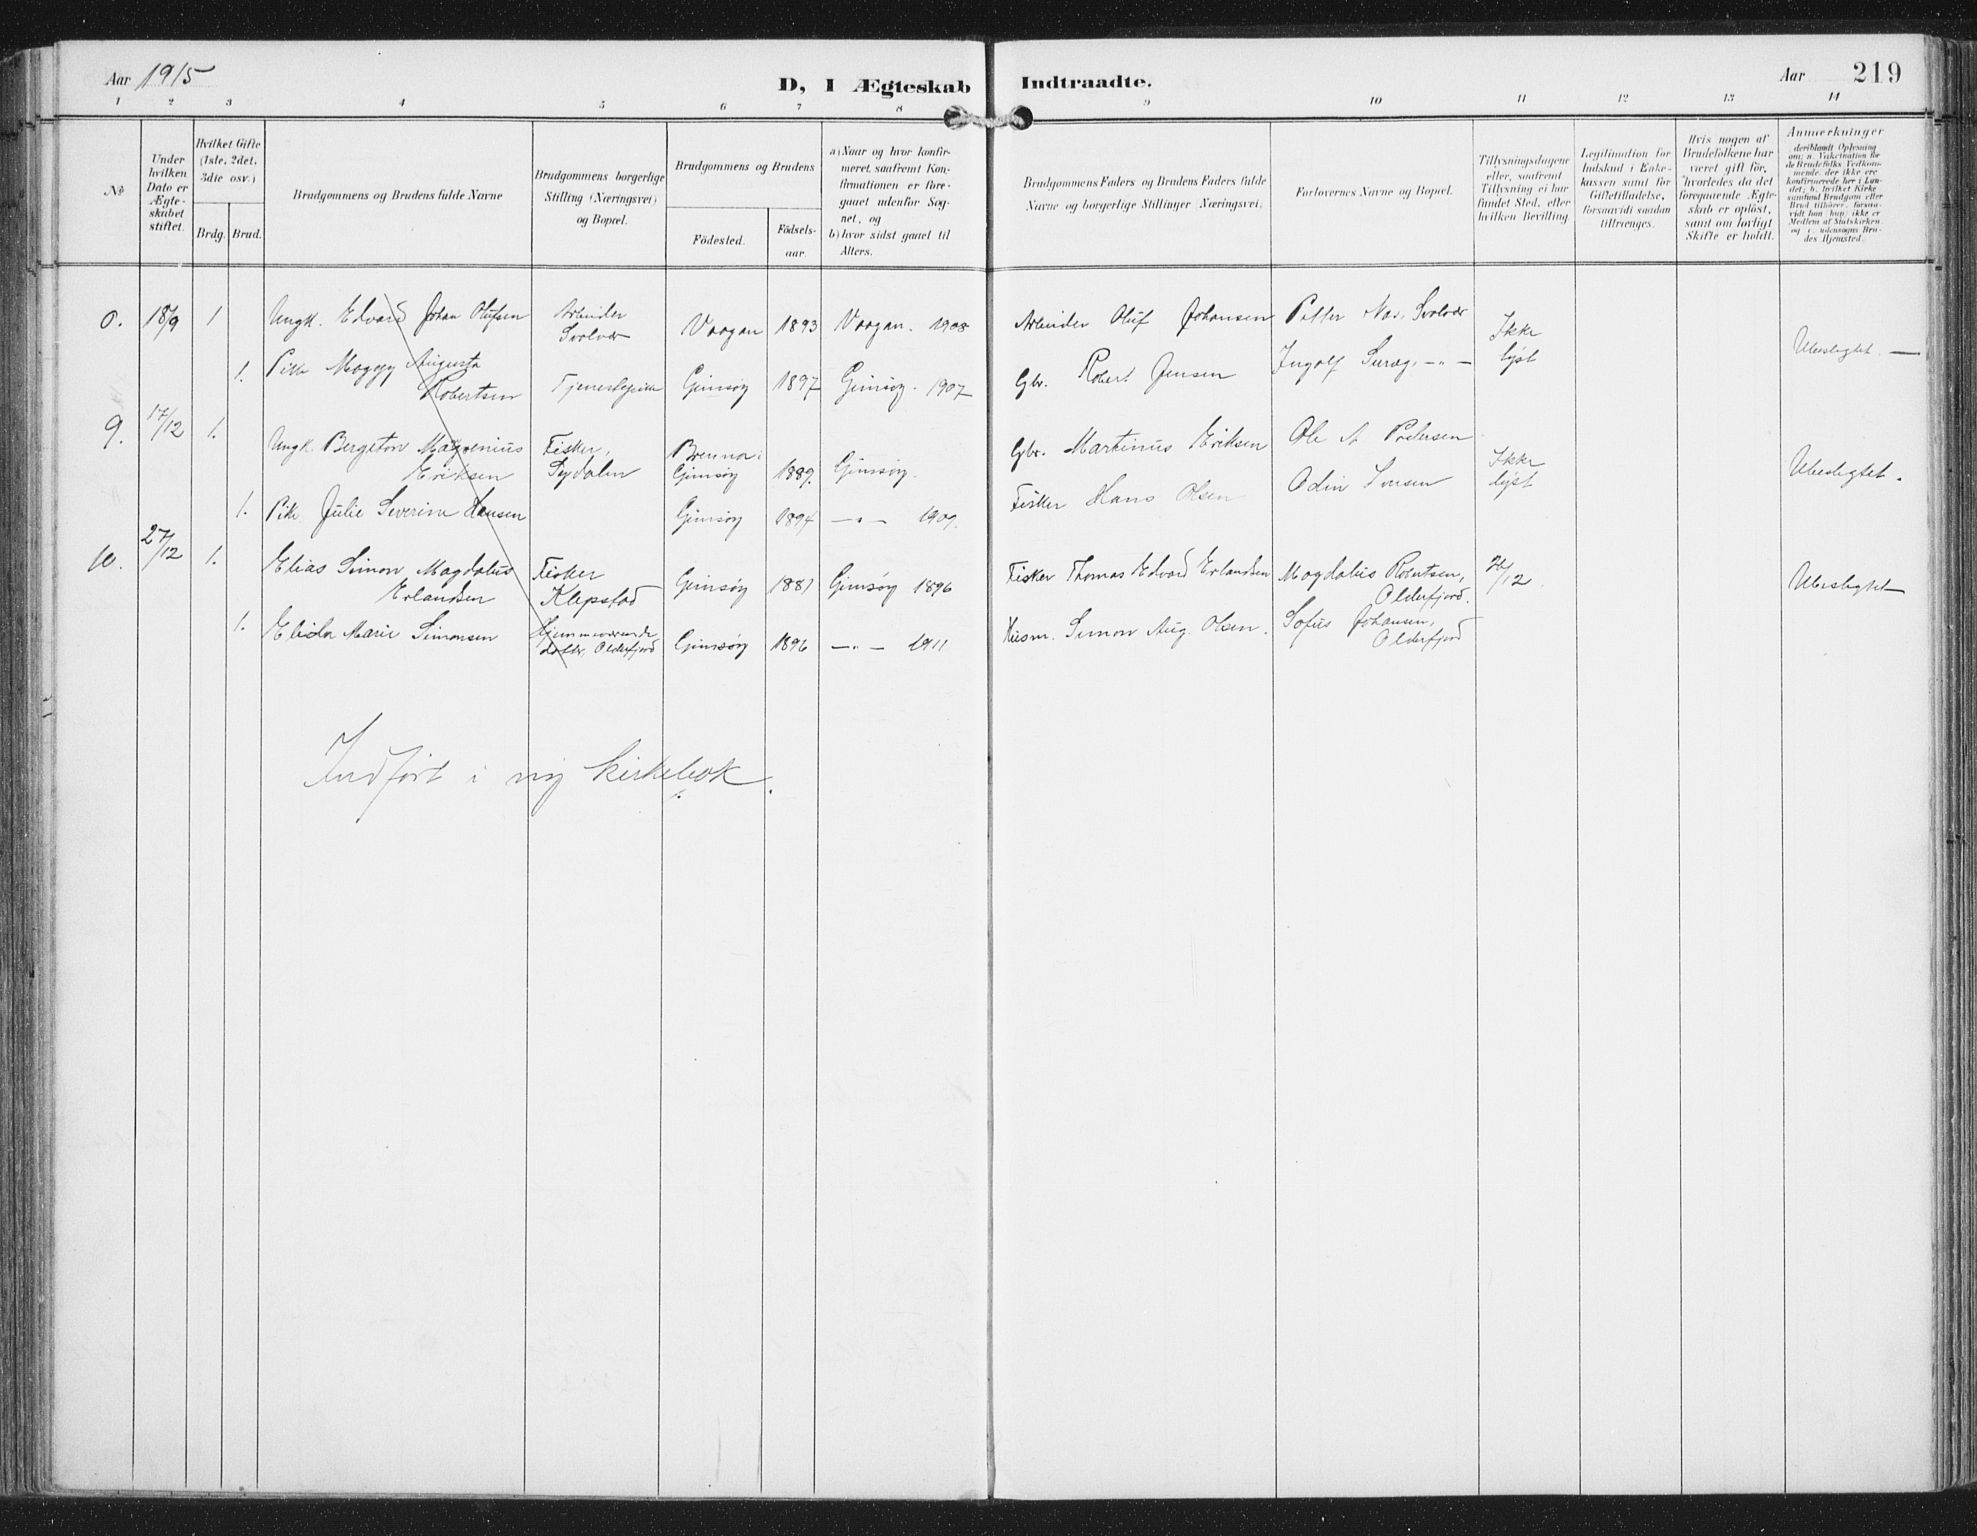 Aar 1915
D, I Ægteskab Indtraadte.
Aar 219
1 2 3 4 5 6 7 8 9 10 11 12 13 14
No
Under hvilken Dato er Ægteskabet stiftet.
Hvilket Gifte (1ste, 2det, 3die osv.)
Brdg. Brud.
Brudgommens og Brudens fulde Navne
Brudgommens borgerlige Stilling (Næringsvei) og Bopæl.
Brudgommens og Brudens
Födested.
Födselsaar.
a) Naar og hvor konfirmeret, saafremt Konfirmationen er foregaaet udenfor Sognet, og
b) hvor sidst gaaet til Alters.
Brudgommens Faders og Brudens Faders fulde Navne og borgerlige Stillinger (Næringsvei).
Forlovernes Navne og Bopæl.
Tillysningsdagene eller, saafremt Tillysning ei har fundet Sted, efter hvilken Bevilling.
Legitimation for Indskud i Enkekassen samt for Giftetilladelse, forsaavidt saadan tiltrænges.
Hvis nogen af Brudefolkene har været gift før, hvorledes da det foregaaende Ægteskab er opløst, samt om lovligt Skifte er holdt.
Anmerkninger
deriblandt Oplysning om: a. Vakcination for de Brudefolks Vedkommende, der ikke ere konfirmerede her i Landet; b. hvilket Kirkesamfund Brudgom eller Brud tilhører, forsaavidt han, hun, ikke er Medlem af Statskirken, og c. udensogns Brudes Hjemsted.
18/9 1 Ungk. Edvard Johan Olufsen Arbeider Svolvær Vaagan 1893 Vaagan. 1908 Arbeider Oluf Johansen Petter Nos, Svolvær Ikke lyst Ubeslegtet. —
1. Pike Maggy Augusta Robertsen Tjenestepike Gimsøy 1897 Gimsøy. 1907 Gbr. Robert Jensen Ingolf -"-
9. 17/12 1. Ungk. Bergeton Eriksen Fisker, Sydalen Brenna i Gimsøy 1889. Gimsøy. Gbr. Martinus Eriksen Ole A Pedersen Ikke lyst Ubeslegtet.
1. Pike Julie Severine Hansen Gimsøy 1894 -"- 1909. Fisker Hans Olsen Odin
10. 27/12 1. Elias Simon Magdalus Erlandsen Fisker Klepstad Gimsøy 1881 Gimsøy 1896 Fisker Thomas Edvard Erlandsen Magdalus Robertsen, Olderfjord. 26/12. Ubeslegtet
1. Elida Marie Simonsen Hjemmeværende datter, Olderfjord Gimsøy 1896 -"- 1911 Husm. Simon Aug. Olsen. Sofus Johansen, Olderfjord
Indført i ny kirkebok.